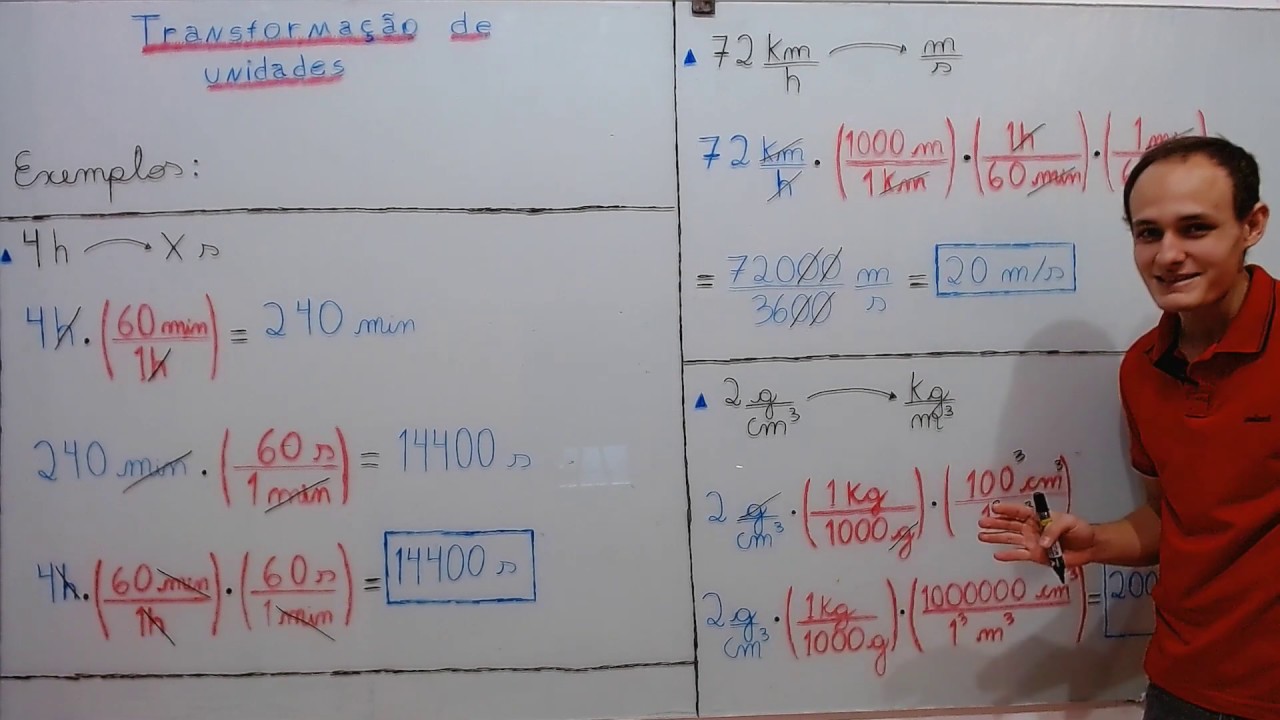 Transformação de
unidades
Exemplos:
4h → X s
4h . (60 min / 1h) = 240 min
240 min . (60 s / 1 min) = 14400 s
4h . (60 min / 1h) . (60 s / 1 min) = 14400 s
72 km/h → m/s
72 km/h . (1000 m / 1 km) . (1h / 60 min) . (1
= 72000 / 3600 m/s = 20 m/s
2 g/cm³ → kg/m³
2 g/cm³ . (1 kg / 1000 g) . (100³ cm³
2 g/cm³ . (1 kg / 1000 g) . (1000000 cm³ / 1³ m³) = 200